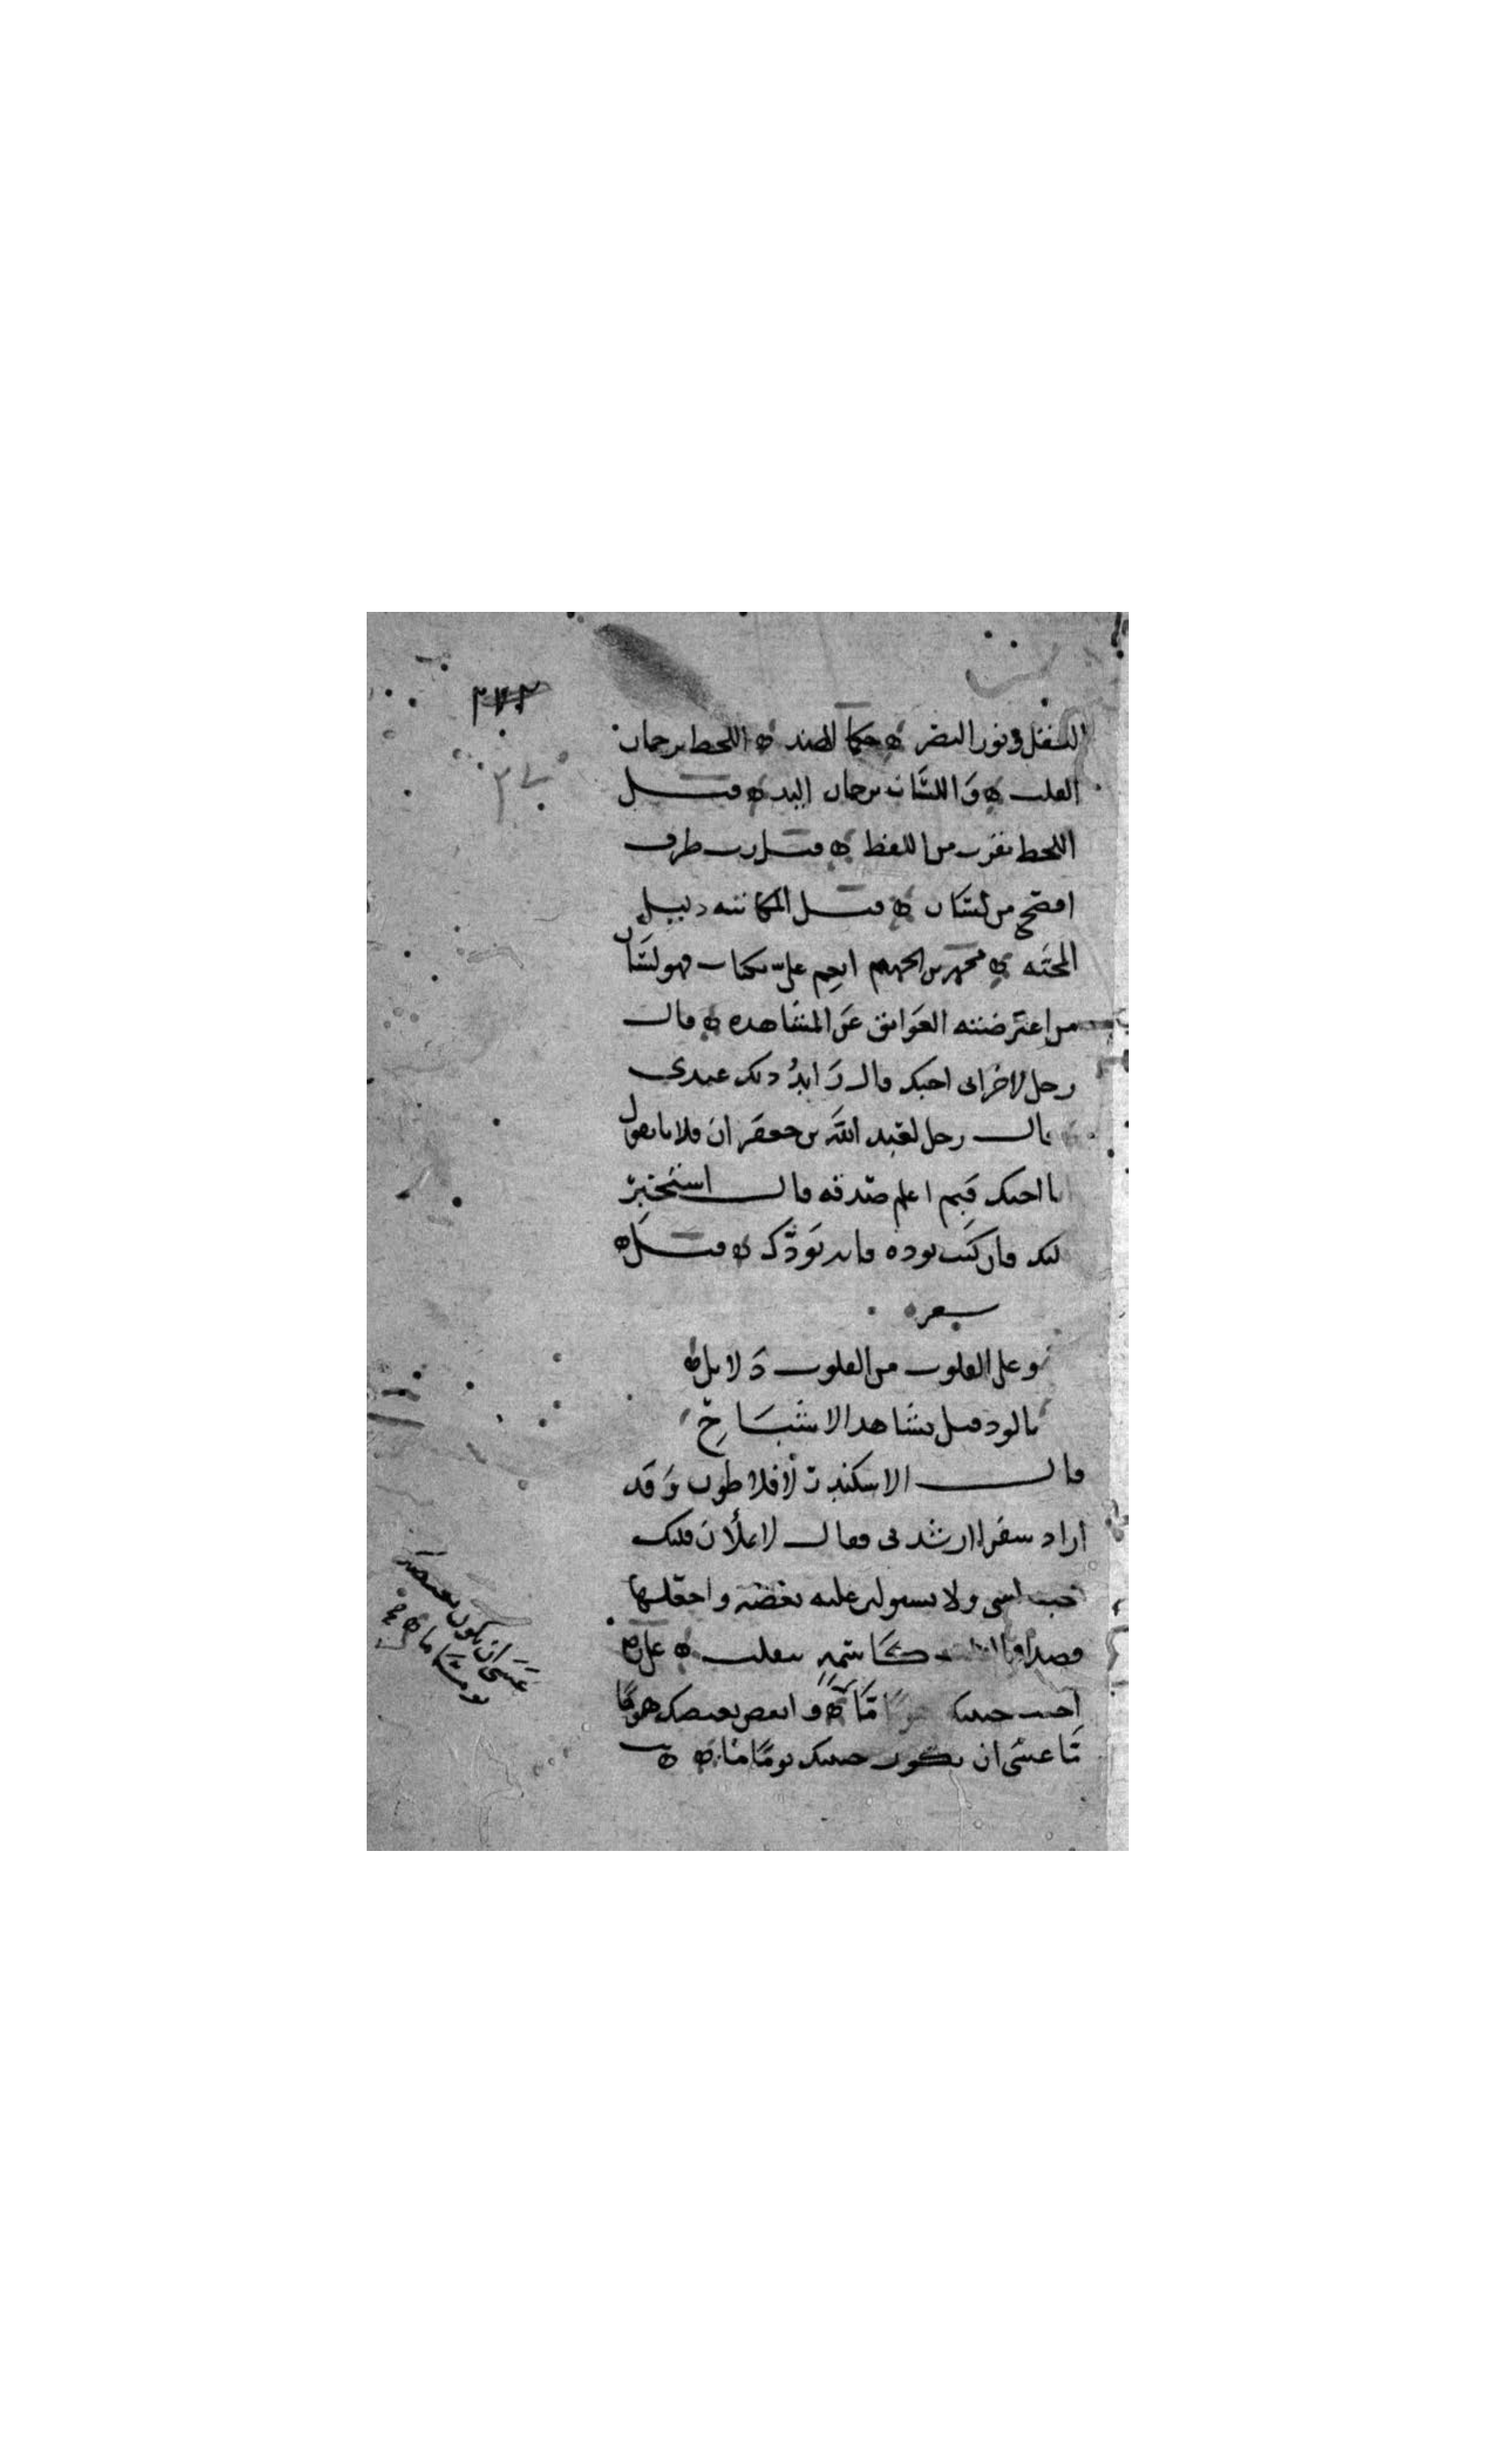 ٢٧٢
السفل في نور البصر ۞ حكما الهند ۞ اللحظ ترجمان
القلب ۞ وَاللسَان ترجمان البدن ۞ قيل
اللحظ يعرب من اللفظ ۞ قيل رب طرف
افصح من لسَان ۞ قيل المكاتبه دليل
المحبّه ۞ محمد بن الجهم انعم عليّ بكتاب فهو لسَان
من اعترضته العَوايق عَن المشاهده ۞ قال
رجل لاخر اني احبك قال رَايدُ ذلك عندي
قال رجل لعَبد الله بن جعفر ان فلانا يقول
انا احبك فَبِم اعلم صدقه قال استَخبِرْ
قلبك فان كنت توده فانه يَودّك ۞ قيل ۞
شعره
وعلى القلوب من القلوب دَلايل ۞
بالود قبل تشاهد الاشبَاحِ
قال الاسكندر لافلاطون وَقد
اراد سفرا ارشدني فقال لا تملأن قلبك
حب شي ولا يستولين عليه بغضه واجعلهما
قصدا فان القلب كاسمه يتقلب ۞ علي ۞
احبب حبيبك هونًا مَّا ۞ وابغض بغيضك هونًا
مَّا عسَى ان يكون حبيبك يومًا مّا ۞ ۞
عسَى ان يكون بغيضك
يومًا ما ۞